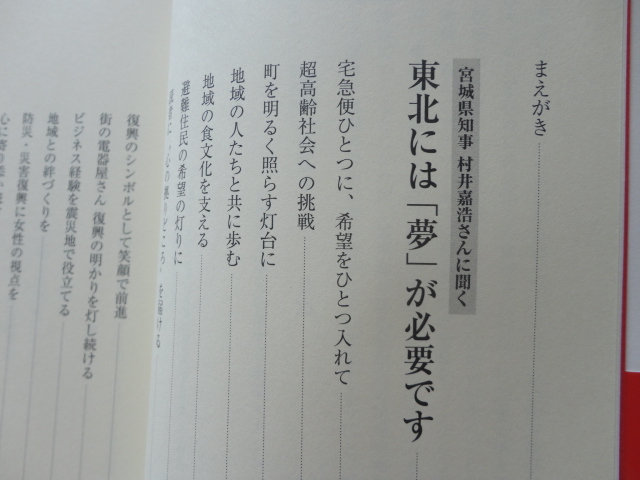 まえがき
宮城県知事 村井嘉浩さんに聞く
東北には「夢」が必要です
宅急便ひとつに、希望をひとつ入れて
超高齢社会への挑戦
町を明るく照らす灯台に
地域の人たちと共に歩む
地域の食文化を支える
避難住民の希望の灯りに
復興のシンボルとして笑顔で前進
街の電器屋さん 復興の明かりを灯し続ける
ビジネス経験を震災地で役立てる
地域との絆づくりを
防災・災害復興に女性の視点を